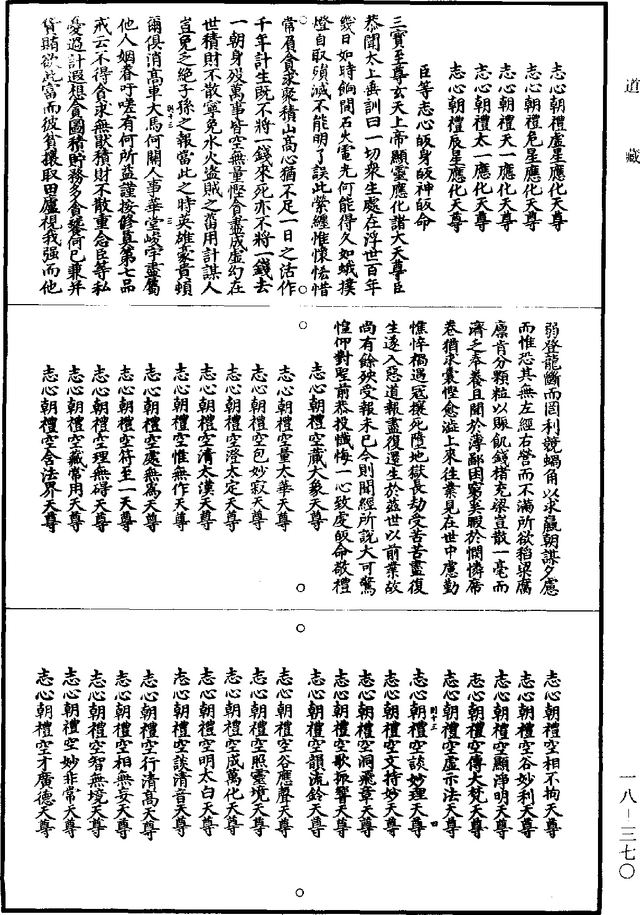 道藏
志心朝禮虛星應化天尊
志心朝禮危星應化天尊
志心朝禮天一應化天尊
志心朝禮太一應化天尊
志心朝禮辰星應化天尊
臣等志心皈身皈神皈命
三寶至尊玄天上帝顯靈應化諸大天尊臣
恭聞太上垂訓曰一切衆生處在浮世百年
幾日如時餉間石火電光何能得久如蛾撲
燈自取殞滅不能明了誤此縈纏惟懷恡惜
常肩貪求聚積山高心猶不足一日之活作
千年計生既不將一錢來死亦不將一錢去
一朝身歿萬事皆空無量慳貪盡成虛幻在
世積財不散寧免水火盜賊之菑用計謀人
豈免之絕子孫之報當此之時英雄豪貴頓
爾俱消高車大馬何關人事華堂峻宇盡屬
他人姻眷吁嗟有何所益謹按修真第七品
戒云不得貪求無猒積財不散重念臣等私
憂過計遐想貪圖積貯務多貪饕何已兼并
貨賄欲此富而彼貧攘取田廬視我强而他
弱登龍斷而罔利競蝸角以求贏朝謀夕慮
而惟恐其無左經右營而不滿所欲稻粱腐
廩肯分顆粒以賑飢錢楮充梁豈散一毫而
濟乏奉養且闕於薄鄙困窮奚暇於憫憐席
卷猶求囊慳愈溢上來往業見在世中慮勤
憔悴禍遇寇攘死墮地獄長劫受苦苦盡復
生逐入惡道報盡復還生於茲世以前業故
尚有餘殃受報未已今則聞經所說大可驚
惶仰對聖前恭投懺悔一心致虔皈命敬禮
志心朝禮空藏大象天尊
志心朝禮空量大華天尊
志心朝禮空包妙寂天尊
志心朝禮空澄太定天尊
志心朝禮空清太漠天尊
志心朝禮空惟無作天尊
志心朝禮空處無爲天尊
志心朝禮空符至一天尊
志心朝禮空理無碍天尊
志心朝禮空藏常用天尊
志心朝禮空含法界天尊
志心朝禮空相不拘天尊
志心朝禮空谷妙利天尊
志心朝禮空顯淨明天尊
志心朝禮空傳大梵天尊
志心朝禮空虛示法天尊
志心朝禮空談妙理天尊
志心朝禮空文持妙天尊
志心朝禮空洞飛章天尊
志心朝禮空歌振響天尊
志心朝禮空韻流鈴天尊
志心朝禮空谷應聲天尊
志心朝禮空照靈境天尊
志心朝禮空成萬化天尊
志心朝禮空明太白天尊
志心朝禮空談清音天尊
志心朝禮空行清高天尊
志心朝禮空相無妄天尊
志心朝禮空智無境天尊
志心朝禮空妙非常天尊
志心朝禮空才廣德天尊
一八－三七〇